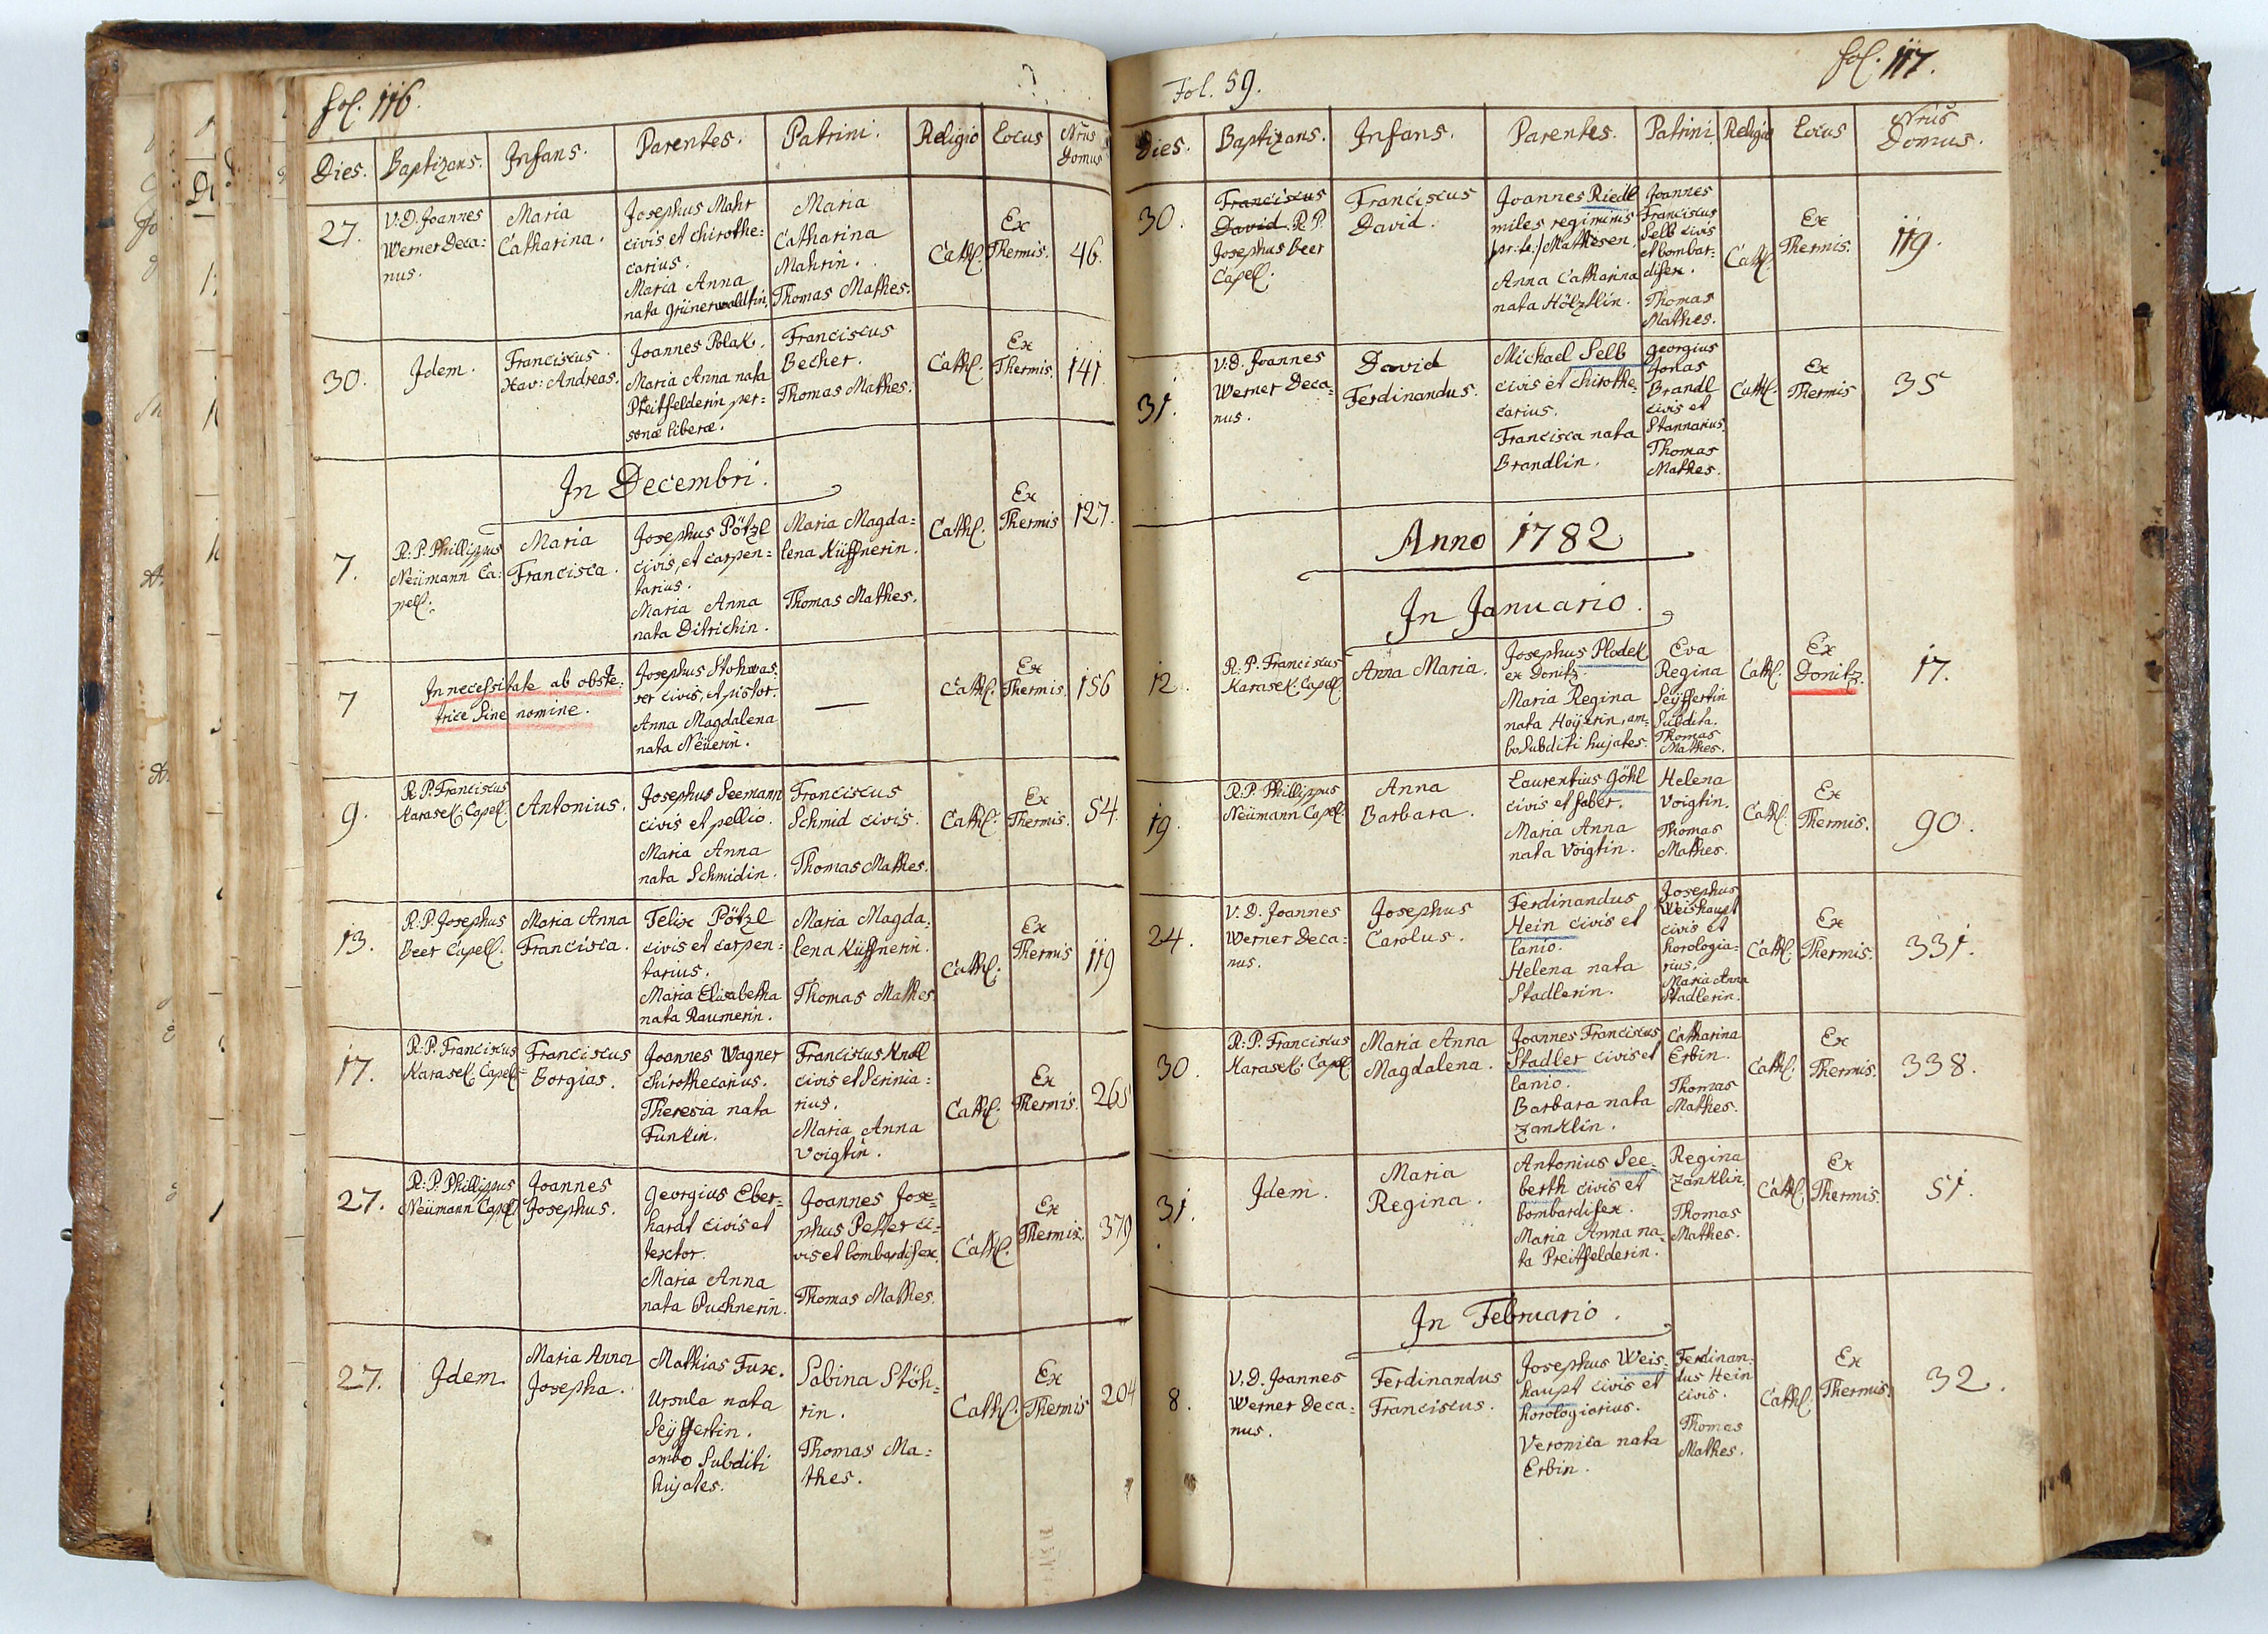 fol. 116.
Dies.
Baptizans.
Infans.
Parentes.
Patrini.
Religio
Locus
Nrus
Domus
27.
V. D. Joannes
Werner Deca:
nus.
Maria
Catharina.
Josephus Mahr
civis et chirothe:
carius.
Maria Anna
nata Grünerwaldtin.
Maria
Catharina
Mahrin.
Thomas Mathes.
Cath.
Ex
Thermis.
46.
30.
Idem.
Franciscus
Xav: Andreas.
Joannes Polak.
Maria Anna nata
Preitfelderin per:
sonæ liberæ.
Franciscus
Becher.
Thomas Mathes.
Cath.
Ex
Thermis.
141.
In Decembri.
7.
R: P. Phillippus
Neümann Ca:
pell:
Maria
Francisca.
Josephus Pötzl
civis, et carpen:
tarius.
Maria Anna
nata Ditrichin.
Maria Magda:
lena Küffnerin.
Thomas Mathes.
Cath.
Ex
Thermis
127.
7
In necessitate ab obste:
trice sine nomine.
Josephus Stohwas:
ser civis, et pistor.
Anna Magdalena
nata Neüerin.
—
Cath.
Ex
Thermis.
156
9.
R: P. Franciscus
Karasek Capell.
Antonius.
Josephus Seemann
civis et pellio.
Maria Anna
nata Schmidin.
Franciscus
Schmid civis.
Thomas Mathes.
Cath.
Ex
Thermis.
54.
13.
R: P. Josephus
Beer Capell.
Maria Anna
Francisca.
Felix Pötzl
civis et carpen:
tarius.
Maria Elisabetha
nata Raumerin.
Maria Magda:
lena Küffnerin.
Thomas Mathes
Cath.
Ex
Thermis
119
17.
R: P. Franciscus
Karasek Capell:
Franciscus
Borgias.
Joannes Wagner
chirothecarius.
Theresia nata
Funkin.
Franciscus Knoll
civis et Scrinia:
rius.
Maria Anna
Voigtin.
Cath.
Ex
Thermis.
265
27.
R: P. Phillippus
Neümann Capell
Joannes
Josephus.
Georgius Eber:
hardt civis et
textor.
Maria Anna
nata Puchnerin.
Joannes Jose:
phus Petter ci:
vis et bombardifex.
Thomas Mathes.
Cath.
Ex
Thermis.
379
27.
Idem.
Maria Anna
Josepha.
Mathias Fux.
Ursula nata
Seÿffertin.
ambo Subditi
hujates.
Sabina Stöh:
rin.
Thomas Ma:
thes.
Cath.
Ex
Thermis
204
Fol. 59.
fol. 117.
Dies.
Baptizans.
Infans.
Parentes.
Patrini
Religio
Locus
Nrus
Domus.
30.
Franciscus
David. R. P.
Josephus Beer
Capell.
Franciscus
David.
Joannes Riedl
miles regiminis
Mathesen.
Anna Catharina
nata Hötzlin.
Joannes
Franciscus
Selb civis
et bombar:
difex.
Thomas
Mathes.
Cath.
Ex
Thermis.
119.
31.
V. D. Joannes
Werner Deca:
nus.
David
Ferdinandus.
Michael Selb
civis et chirothe:
carius.
Francisca nata
Brandlin.
Georgius
Jonas
Brandl
civis et
Stannarius.
Thomas
Mathes.
Cath.
Ex
Thermis
35
Anno 1782
In Januario.
12.
R: P. Franciscus
Karasek Capell.
Anna Maria.
Josephus Plodek
ex Donitz.
Maria Regina
nata Hoÿerin, am:
bo Subditi hujates.
Eva
Regina
Seÿffertin
Subdita.
Thomas
Mathes.
Cath.
Ex
Donitz.
17.
19.
R: P. Phillippus
Neümann Capell.
Anna
Barbara.
Laurentius Göhl
civis et faber.
Maria Anna
nata Voigtin.
Helena
Voigtin.
Thomas
Mathes.
Cath.
Ex
Thermis.
90.
24.
V. D. Joannes
Werner Deca:
nus.
Josephus
Carolus.
Ferdinandus
Hein civis et
lanio.
Helena nata
Stadlerin.
Josephus
Weishaupt
civis et
horologia:
rius.
Maria Anna
Stadlerin.
Cath.
Ex
Thermis.
331.
30.
R: P. Franciscus
Karasek Capell
Maria Anna
Magdalena.
Joannes Franciscus
Stadler civis et
lanio.
Barbara nata
Zanklin.
Catharina
Erbin.
Thomas
Mathes.
Cath.
Ex
Thermis.
338.
31.
Idem.
Maria
Regina.
Antonius See:
berth civis et
bombardifex.
Maria Anna na:
ta Preitfelderin.
Regina
Zanklin.
Thomas
Mathes.
Cath.
Ex
Thermis.
51.
In Februario.
8.
V. D. Joannes
Werner Deca:
nus.
Ferdinandus
Franciscus.
Josephus Weis:
haupt civis et
horologiarius.
Veronica nata
Erbin.
Ferdinan:
dus Hein
civis.
Thomas
Mathes.
Cath.
Ex
Thermis.
32.